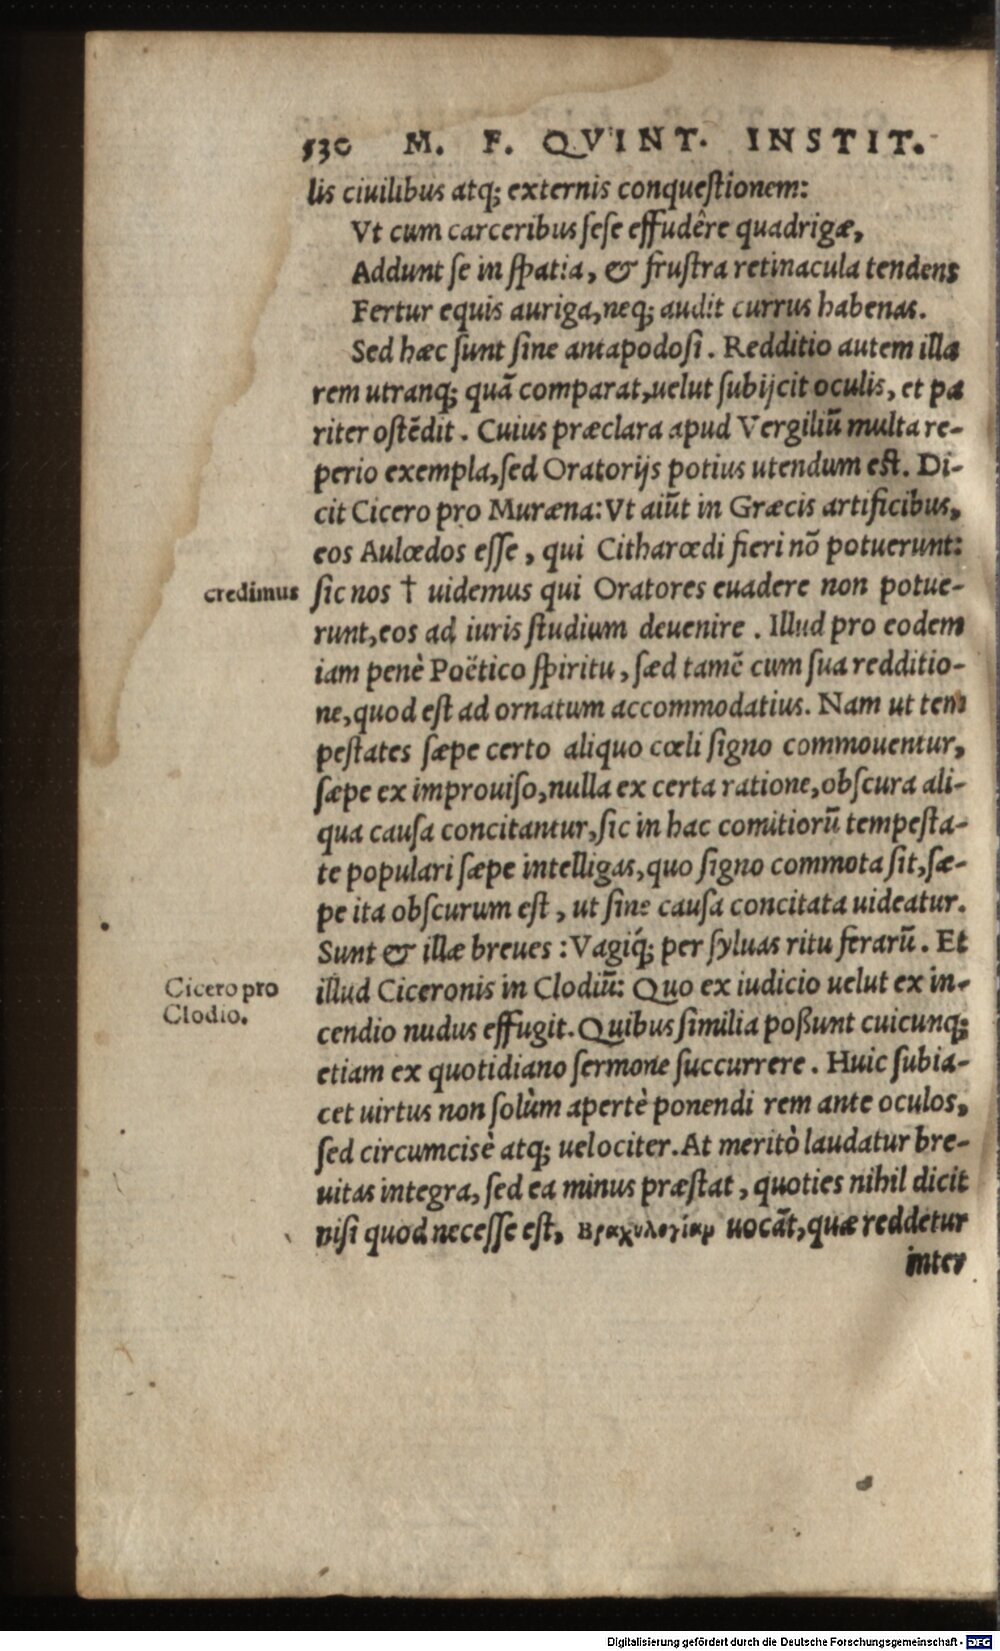 530 M. F. QVINT. INSTIT.
lis ciuilibus atq; externis conquestionem:
Vt cum carceribus sese effudêre quadrigæ,
Addunt se in spatia, & frustra retinacula tendens
Fertur equis auriga, neq; audit currus habenas.
Sed hæc sunt sine antapodosi. Redditio autem illa
rem utranq; quā comparat, uelut subijcit oculis, et pa
riter ostēdit. Cuius præclara apud Vergiliū multa re-
perio exempla, sed Oratorijs potius utendum est. Di-
cit Cicero pro Muræna: Vt aiūt in Græcis artificibus,
eos Aulœdos esse, qui Citharœdi fieri nō potuerunt:
credimus sic nos † uidemus qui Oratores euadere non potue-
runt, eos ad iuris studium deuenire. Illud pro eodem
iam penè Poëtico spiritu, sæd tamē cum sua redditio-
ne, quod est ad ornatum accommodatius. Nam ut tem
pestates sæpe certo aliquo cœli signo commouentur,
sæpe ex improuiso, nulla ex certa ratione, obscura ali-
qua causa concitantur, sic in hac comitiorū tempesta-
te populari sæpe intelligas, quo signo commota sit, sæ-
pe ita obscurum est, ut sine causa concitata uideatur.
Sunt & illæ breues: Vagiq́; per syluas ritu ferarū. Et
Cicero pro illud Ciceronis in Clodiū: Quo ex iudicio uelut ex in-
Clodio. cendio nudus effugit. Quibus similia poßunt cuicunq;
etiam ex quotidiano sermone succurrere. Huic subia-
cet uirtus non solùm apertè ponendi rem ante oculos,
sed circumcisè atq; uelociter. At meritò laudatur bre-
uitas integra, sed ea minus præstat, quoties nihil dicit
nisi quod necesse est, βραχυλογίαμ uocāt, quæ reddetur
inter
Digitalisierung gefördert durch die Deutsche Forschungsgemeinschaft - DFG